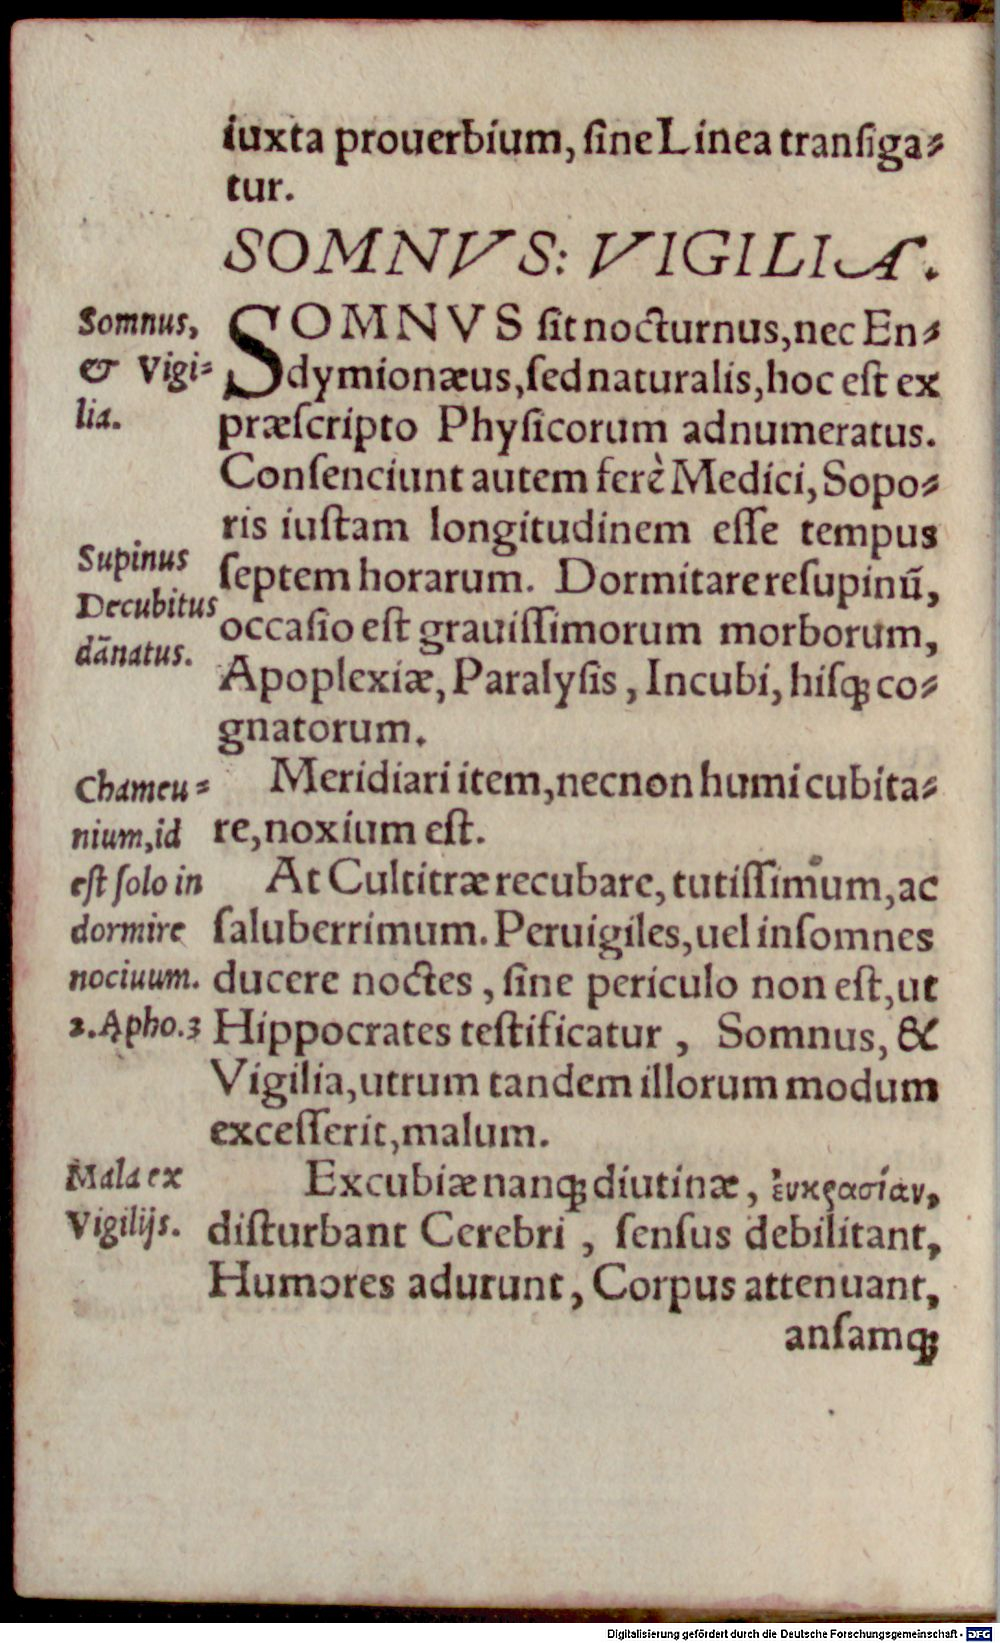 iuxta prouerbium, ſine Linea tranſiga⸗
tur.
SOMNVS: VIGILIA.
Somnus,
& Vigi⸗
lia.
SOMNVS ſit nocturnus, nec En⸗
dymionæus, ſed naturalis, hoc eſt ex
præſcripto Phyſicorum adnumeratus.
Conſenciunt autem ferè Medici, Sopo⸗
ris iuſtam longitudinem eſſe tempus
Supinus
Decubitus
dānatus.
ſeptem horarum. Dormitare reſupinū,
occaſio eſt grauiſſimorum morborum,
Apoplexiæ, Paralyſis, Incubi, hiſꝗ; co⸗
gnatorum.
Chameu⸗
nium, id
eſt ſolo in
dormire
nociuum.
2. Apho. 3
Meridiari item, necnon humi cubita⸗
re, noxium eſt.
At Cultitræ recubare, tutiſſimum, ac
ſaluberrimum. Peruigiles, uel inſomnes
ducere noctes, ſine periculo non eſt, ut
Hippocrates teſtificatur, Somnus, &
Vigilia, utrum tandem illorum modum
exceſſerit, malum.
Mala ex
Vigilijs.
Excubiæ nanꝗ; diutinæ, ἐυκρασίαν,
diſturbant Cerebri, ſenſus debilitant,
Humores adurunt, Corpus attenuant,
anſamꝗ;
Digitalisierung gefördert durch die Deutsche Forschungsgemeinschaft - DFG